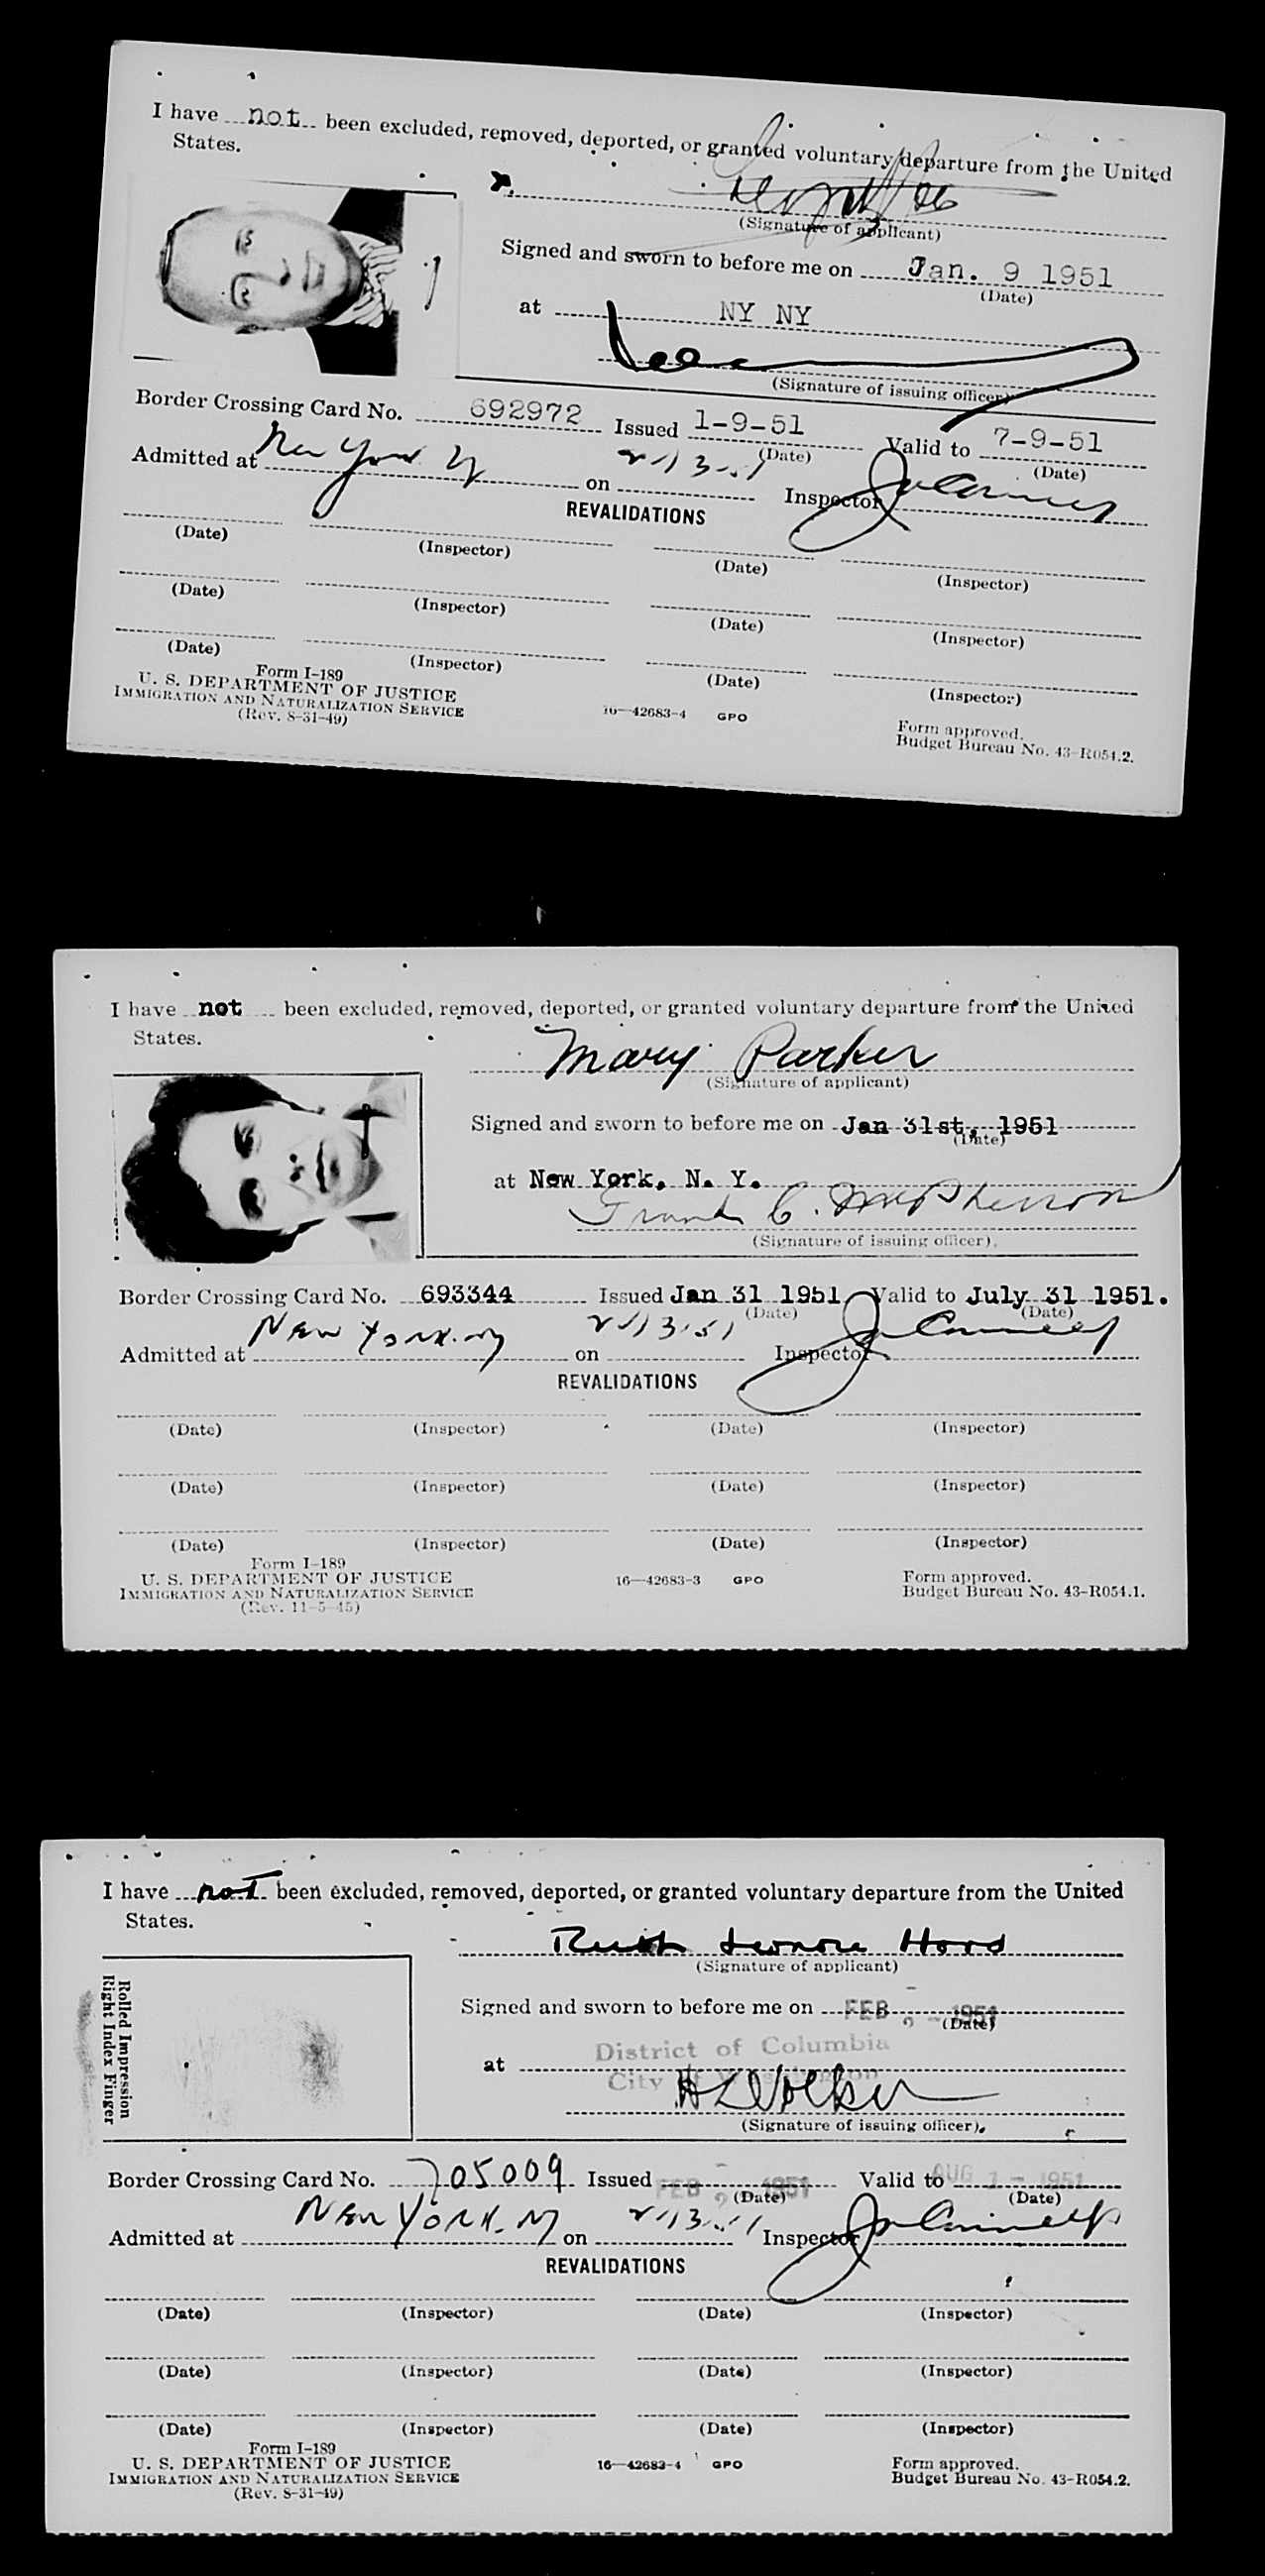 I have not been excluded, removed, deported, or granted voluntary departure from the United
States.
(Signature of applicant)
Signed and sworn to before me on Jan. 9 1951
(Date)
at NY NY
(Signature of issuing officer)
Border Crossing Card No. 692972 Issued 1-9-51 Valid to 7-9-51
(Date) (Date)
Admitted at New York Ny on 2/13-51 Inspector
REVALIDATIONS
(Date) (Inspector) (Date) (Inspector)
(Date) (Inspector) (Date) (Inspector)
(Date) (Inspector) (Date) (Inspector)
Form I-189
U. S. DEPARTMENT OF JUSTICE
IMMIGRATION AND NATURALIZATION SERVICE
(Rev. 8-31-49)
16—42683-4 GPO
Form approved.
Budget Bureau No. 43-R054.2.
I have not been excluded, removed, deported, or granted voluntary departure from the United
States.
Mary Parker
(Signature of applicant)
Signed and sworn to before me on Jan 31st, 1951
(Date)
at New York, N. Y.
Frank C. McPherron
(Signature of issuing officer).
Border Crossing Card No. 693344 Issued Jan 31 1951 Valid to July 31 1951.
(Date) (Date)
Admitted at New York. Ny on 2/13.51 Inspector
REVALIDATIONS
(Date) (Inspector) (Date) (Inspector)
(Date) (Inspector) (Date) (Inspector)
(Date) (Inspector) (Date) (Inspector)
Form I-189
U. S. DEPARTMENT OF JUSTICE
IMMIGRATION AND NATURALIZATION SERVICE
(Rev. 11-5-45)
16—42683-3 GPO
Form approved.
Budget Bureau No. 43-R054.1.
I have not been excluded, removed, deported, or granted voluntary departure from the United
States.
Ruth Lenore Hord
(Signature of applicant)
Rolled Impression
Right Index Finger
Signed and sworn to before me on FEB 2 - 1951
(Date)
District of Columbia
at
City of Washington
(Signature of issuing officer).
Border Crossing Card No. 705009 Issued FEB 2 - 1951 Valid to AUG 1 - 1951
(Date) (Date)
Admitted at New York. Ny on 2/13.51 Inspector
REVALIDATIONS
(Date) (Inspector) (Date) (Inspector)
(Date) (Inspector) (Date) (Inspector)
(Date) (Inspector) (Date) (Inspector)
Form I-189
U. S. DEPARTMENT OF JUSTICE
IMMIGRATION AND NATURALIZATION SERVICE
(Rev. 8-31-49)
16—42683-4 GPO
Form approved.
Budget Bureau No. 43-R054.2.